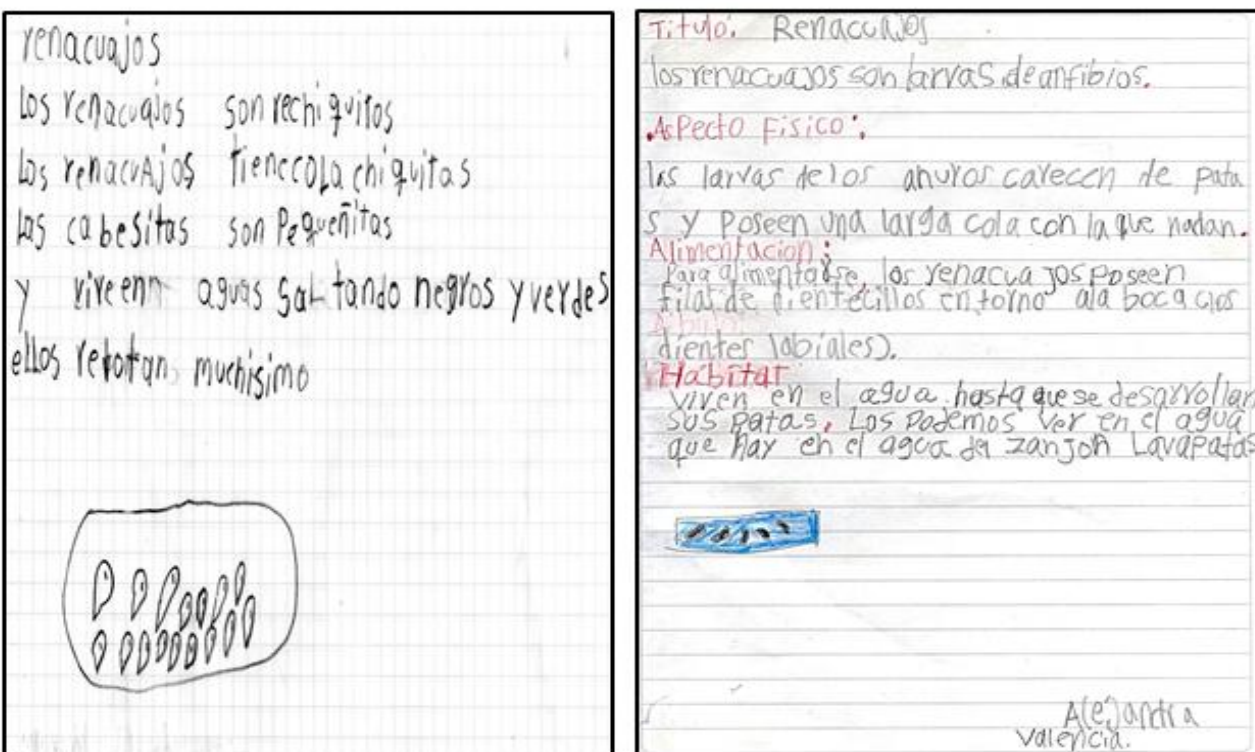 renacuajos
Los renacuajos son rechiquitos
Los renacuAjos tieneccola chiquitas
Las cabesitas son Pequeñitas
y viveenn aguas saltando negros y verdes
ellos rebotan muchisimo
Titulo: Renacuajos
los renacuajos son larvas de anfibios.
Aspecto Fisico:
las larvas de los anuros carecen de pata
s y Poseen una larga cola con la que nadan.
Alimentacion:
Para alimentarse, los renacuajos poseen
filas de dientecillos en torno ala boca
dientes labiales).
Habitat
viven en el agua hasta que se desarrollan
sus patas. Los Podemos ver en el agua
que hay en el agua del zanjon Lavapatas
Alejandra
Valencia.